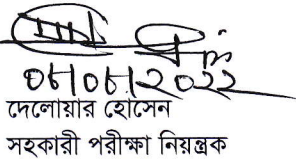 ০৮/০৮/২০২২
দেলোয়ার হোসেন
সহকারী পরীক্ষা নিয়ন্ত্রক